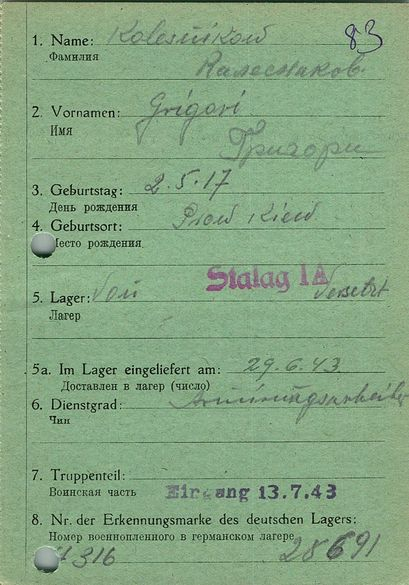 83
1. Name: Kolesnikow
Фамилия
Калеснаков
2. Vornamen: Grigori
Имя
Григори
3. Geburtstag: 2.5.17
День рождения
4. Geburtsort: Kiew
Место рождения
Stalag IA
5. Lager: Von Versetzt
Лагер
5a. Im Lager eingeliefert am: 29.6.43
Доставлен в лагер (число)
6. Dienstgrad:
Чин
7. Truppenteil:
Воинская часть Eingang 13.7.43
8. Nr. der Erkennungsmarke des deutschen Lagers:
Номер военнопленного в германском лагере
316 28691